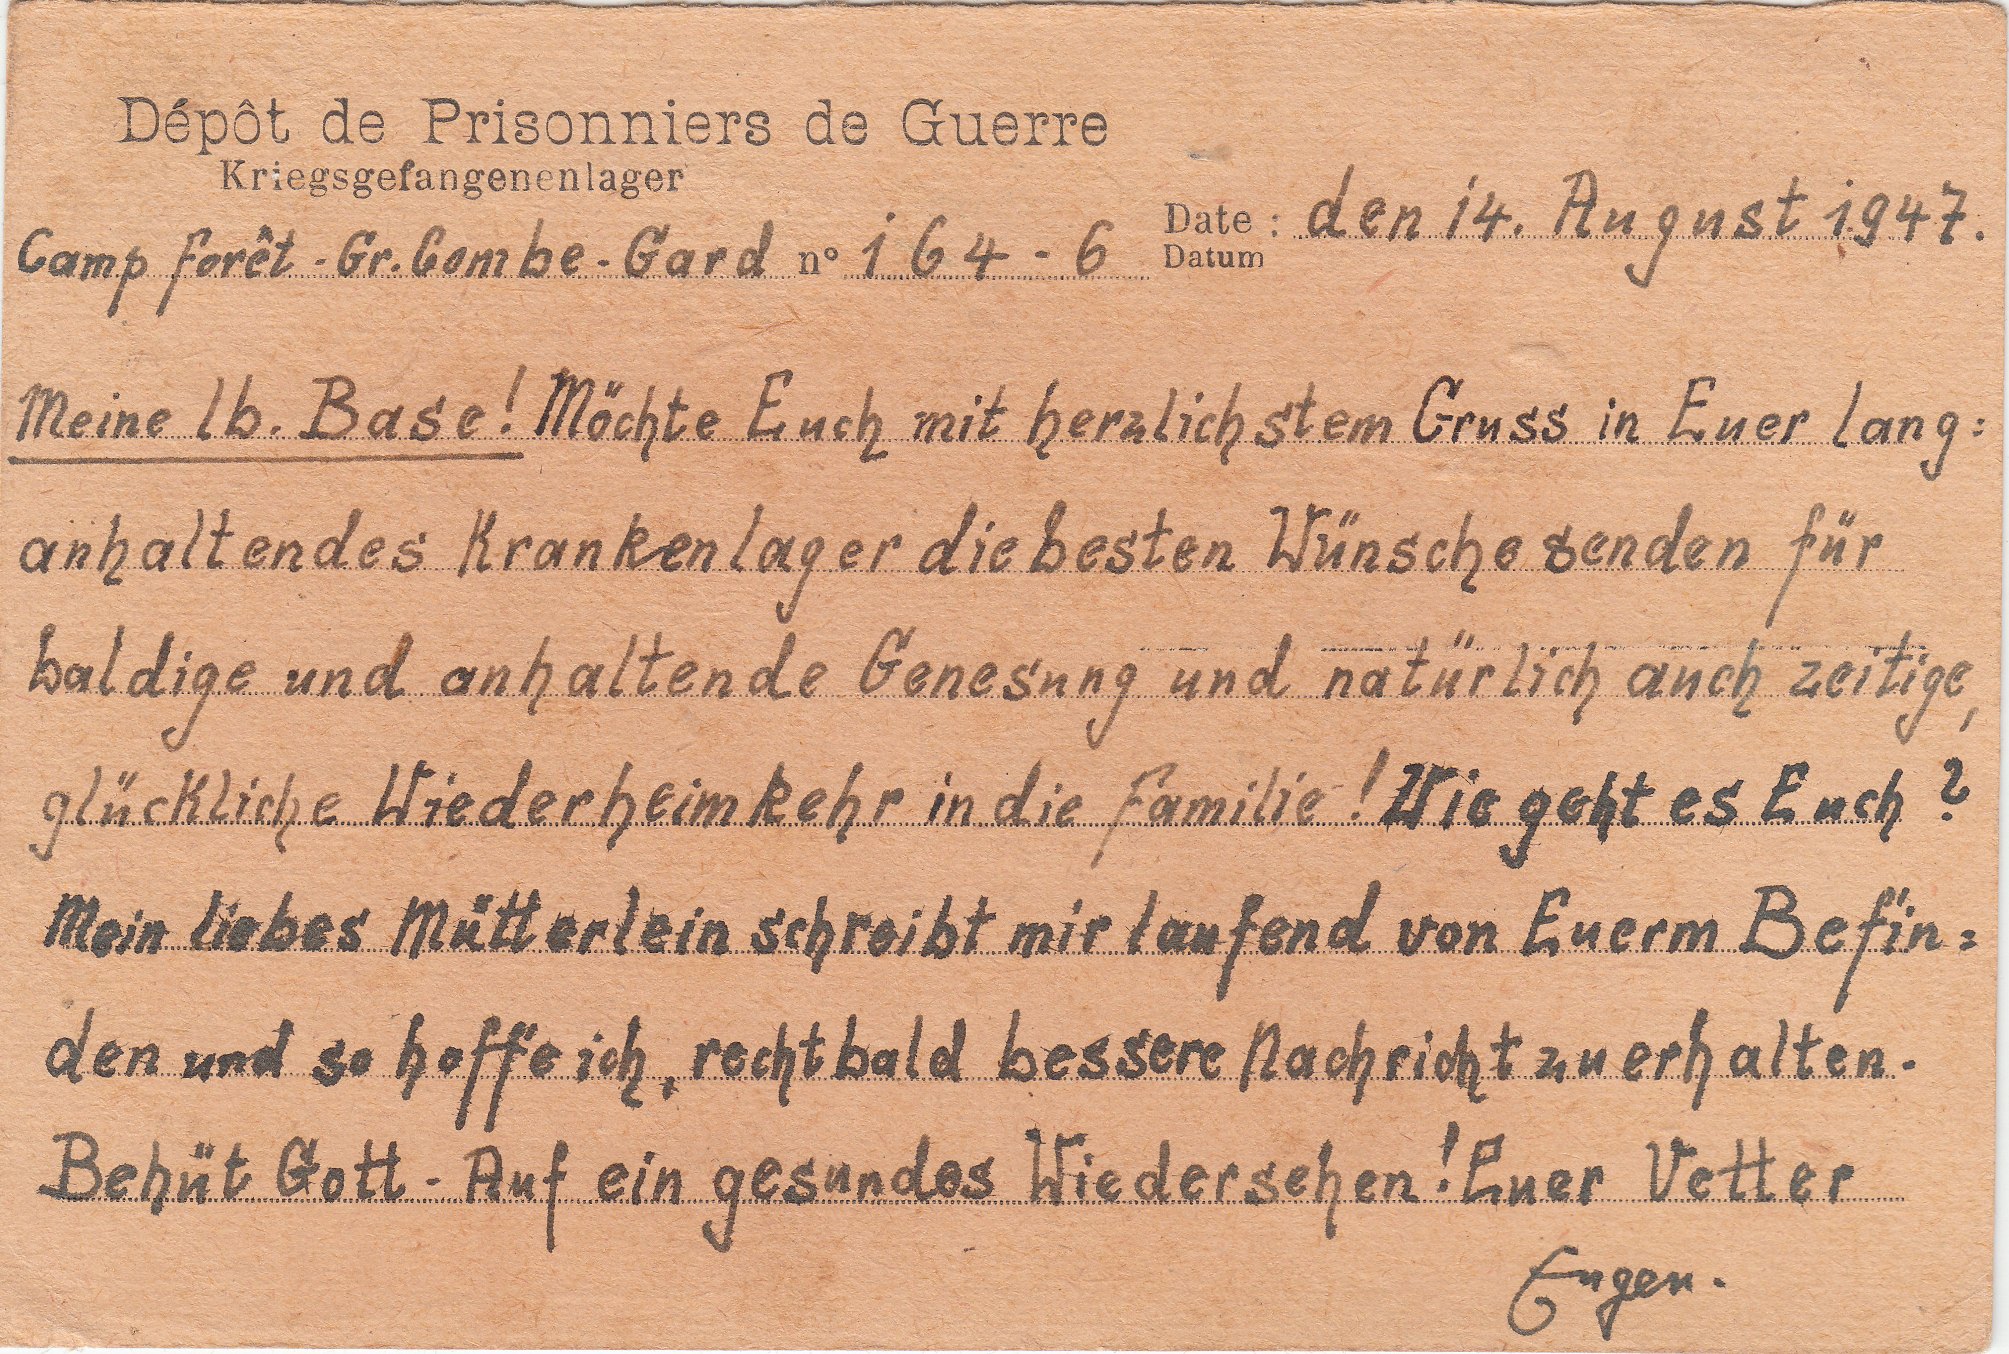 Dépôt de Prisonniers de Guerre
Kriegsgefangenenlager
Camp Forêt - Gr. Combe - Gard n° 164 - 6
Date : den 14. August 1947.
Datum
Meine lb. Base! Möchte Euch mit herzlichstem Gruss in Euer lang=
anhaltendes Krankenlager die besten Wünsche senden für
baldige und anhaltende Genesung und natürlich auch zeitige,
glückliche Wiederheimkehr in die Familie! Wie geht es Euch?
Mein liebes Mütterlein schreibt mir laufend von Euerm Befin=
den und so hoffe ich, recht bald bessere Nachricht zu erhalten.
Behüt Gott - Auf ein gesundes Wiedersehen! Euer Vetter
Eugen.